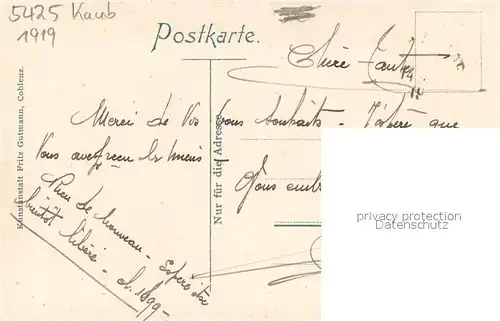 5425 Kaub
1919
Postkarte.
Chère Tante
Merci de Vos bons souhaits - J'espère que
Vous avez reçu les miens
Vous
Rien de nouveau - Espère être
bientôt libéré -
Kunstanstalt Fritz Gutmann, Coblenz.
Nur für die Adresse
privacy protection
Datenschutz